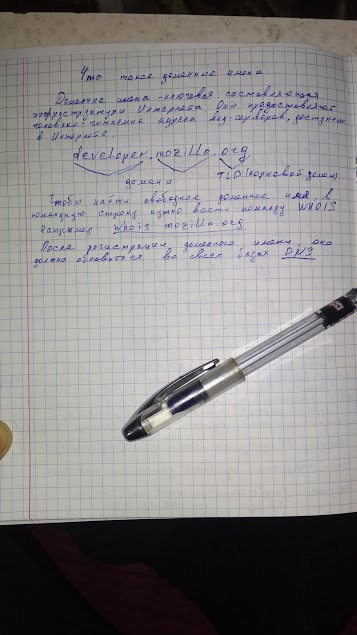 Что такое доменные имена
Доменные имена - ключевая составляющая
инфраструктуры Интернета Они предоставляют
человеко-читаемые адреса веб-серверов, доступных
в Интернете
developer.mozilla.org
домены TLD (корневой домен)
Чтобы найти свободное доменное имя в
командную строку нужно ввести команду WHOIS
Например: whois mozilla.org
После регистрации доменного имени оно
должно обновиться во всех базах DNS